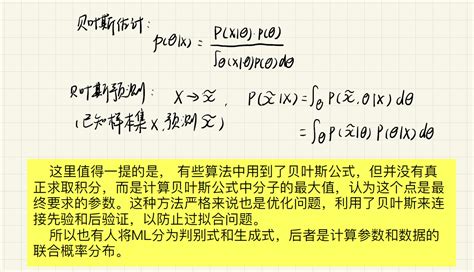 贝叶斯估计: P(θ|X) = P(X|θ)·P(θ) / ∫θ(X|θ)P(θ)dθ
贝叶斯预测: X → x̃, P(x̃|X) = ∫θ P(x̃,θ|X) dθ
(已知样本集X,预测x̃) = ∫θ P(x̃|θ) P(θ|X) dθ
这里值得一提的是, 有些算法中用到了贝叶斯公式,但并没有真
正求取积分,而是计算贝叶斯公式中分子的最大值,认为这个点是最
终要求的参数。这种方法严格来说也是优化问题,利用了贝叶斯来连
接先验和后验证,以防止过拟合问题。
所以也有人将ML分为判别式和生成式,后者是计算参数和数据的
联合概率分布。